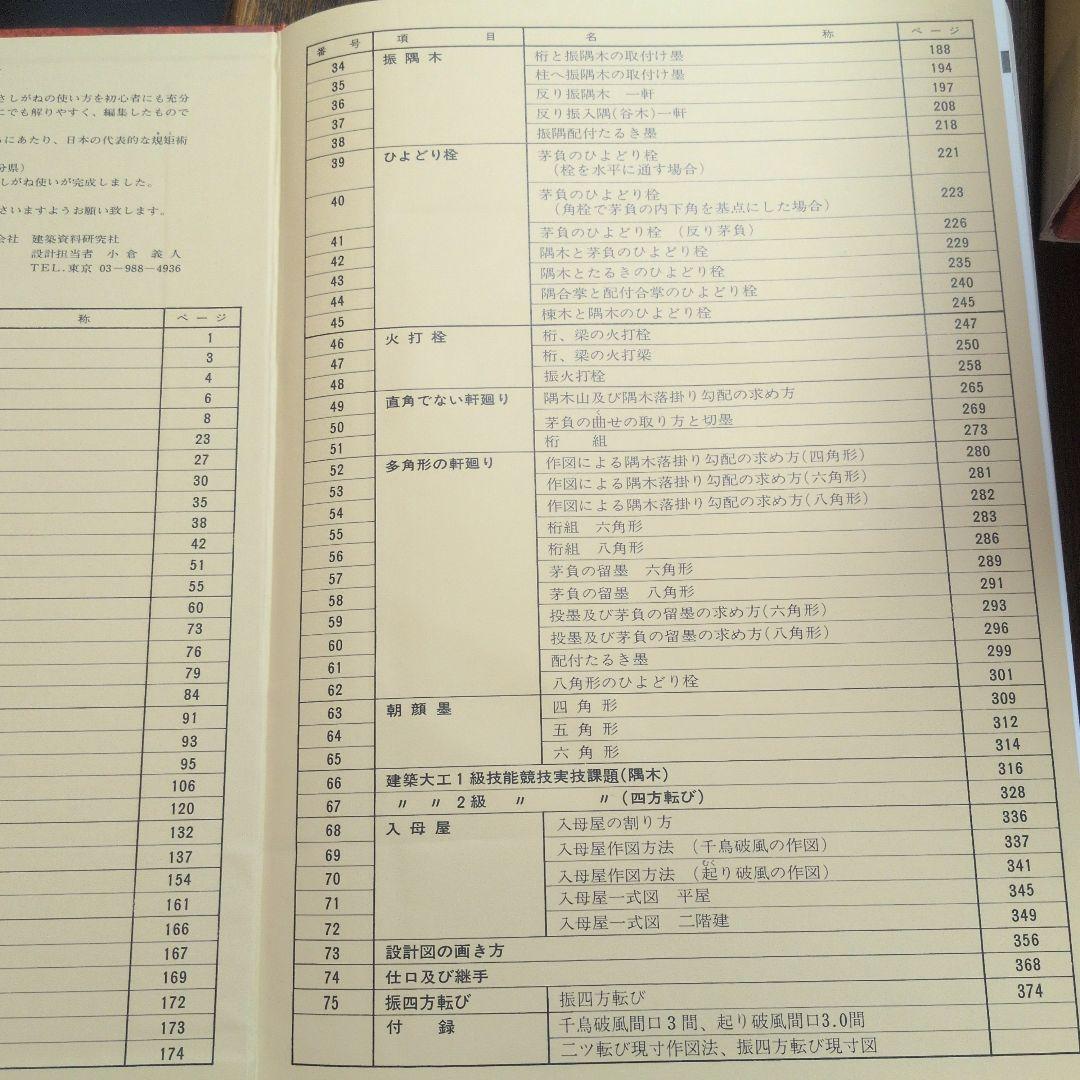 さしがねの使い方を初心者にも充分
にでも解りやすく、編集したもので
るにあたり、日本の代表的な規矩術
分県)
しがね使いが完成しました。
さいますようお願い致します。
会社 建築資料研究社
設計担当者 小倉義人
TEL.東京 03-988-4936
称 ページ
1
3
4
6
8
23
27
30
35
38
42
51
55
60
73
76
79
84
91
93
95
106
120
132
137
154
161
166
167
169
172
173
174
番号 項目 名称 ページ
34 振隅木 桁と振隅木の取付け墨 188
35 柱へ振隅木の取付け墨 194
36 反り振隅木 一軒 197
37 反り振入隅(谷木)一軒 208
38 振隅配付たるき墨 218
39 ひよどり栓 茅負のひよどり栓 221
(栓を水平に通す場合)
40 茅負のひよどり栓 223
(角栓で茅負の内下角を基点にした場合)
41 茅負のひよどり栓 (反り茅負) 226
42 隅木と茅負のひよどり栓 229
43 隅木とたるきのひよどり栓 235
44 隅合掌と配付合掌のひよどり栓 240
45 棟木と隅木のひよどり栓 245
46 火打栓 桁、梁の火打栓 247
47 桁、梁の火打梁 250
48 振火打栓 258
49 直角でない軒廻り 隅木山及び隅木落掛り勾配の求め方 265
50 茅負の曲せの取り方と切墨 269
51 桁組 273
52 多角形の軒廻り 作図による隅木落掛り勾配の求め方(四角形) 280
53 作図による隅木落掛り勾配の求め方(六角形) 281
54 作図による隅木落掛り勾配の求め方(八角形) 282
55 桁組 六角形 283
56 桁組 八角形 286
57 茅負の留墨 六角形 289
58 茅負の留墨 八角形 291
59 投墨及び茅負の留墨の求め方(六角形) 293
60 投墨及び茅負の留墨の求め方(八角形) 296
61 配付たるき墨 299
62 八角形のひよどり栓 301
63 朝顔墨 四角形 309
64 五角形 312
65 六角形 314
66 建築大工1級技能競技実技課題(隅木) 316
67 〃 〃 2級 〃 〃 (四方転び) 328
68 入母屋 入母屋の割り方 336
69 入母屋作図方法 (千鳥破風の作図) 337
70 入母屋作図方法 (起り破風の作図) 341
71 入母屋一式図 平屋 345
72 入母屋一式図 二階建 349
73 設計図の画き方 356
74 仕口及び継手 368
75 振四方転び 振四方転び 374
付録 千鳥破風間口3間、起り破風間口3.0間
二ツ転び現寸作図法、振四方転び現寸図